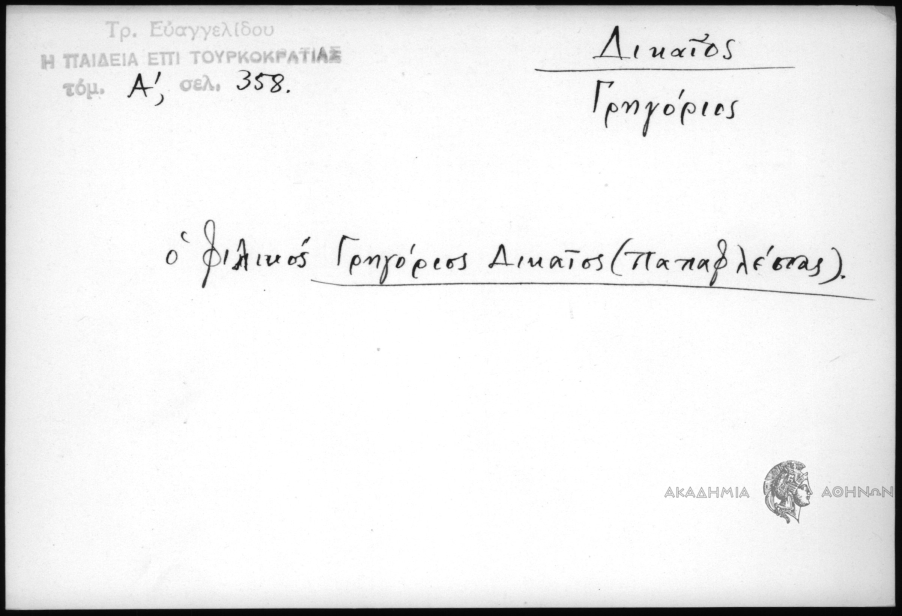 Τρ. Εὐαγγελίδου
Η ΠΑΙΔΕΙΑ ΕΠΙ ΤΟΥΡΚΟΚΡΑΤΙΑΣ
τόμ. Α', σελ. 358.
Δικαῖος
Γρηγόριος
ὁ φιλικός Γρηγόριος Δικαῖος (Παπαφλέσσας).
ΑΚΑΔΗΜΙΑ ΑΘΗΝΩΝ